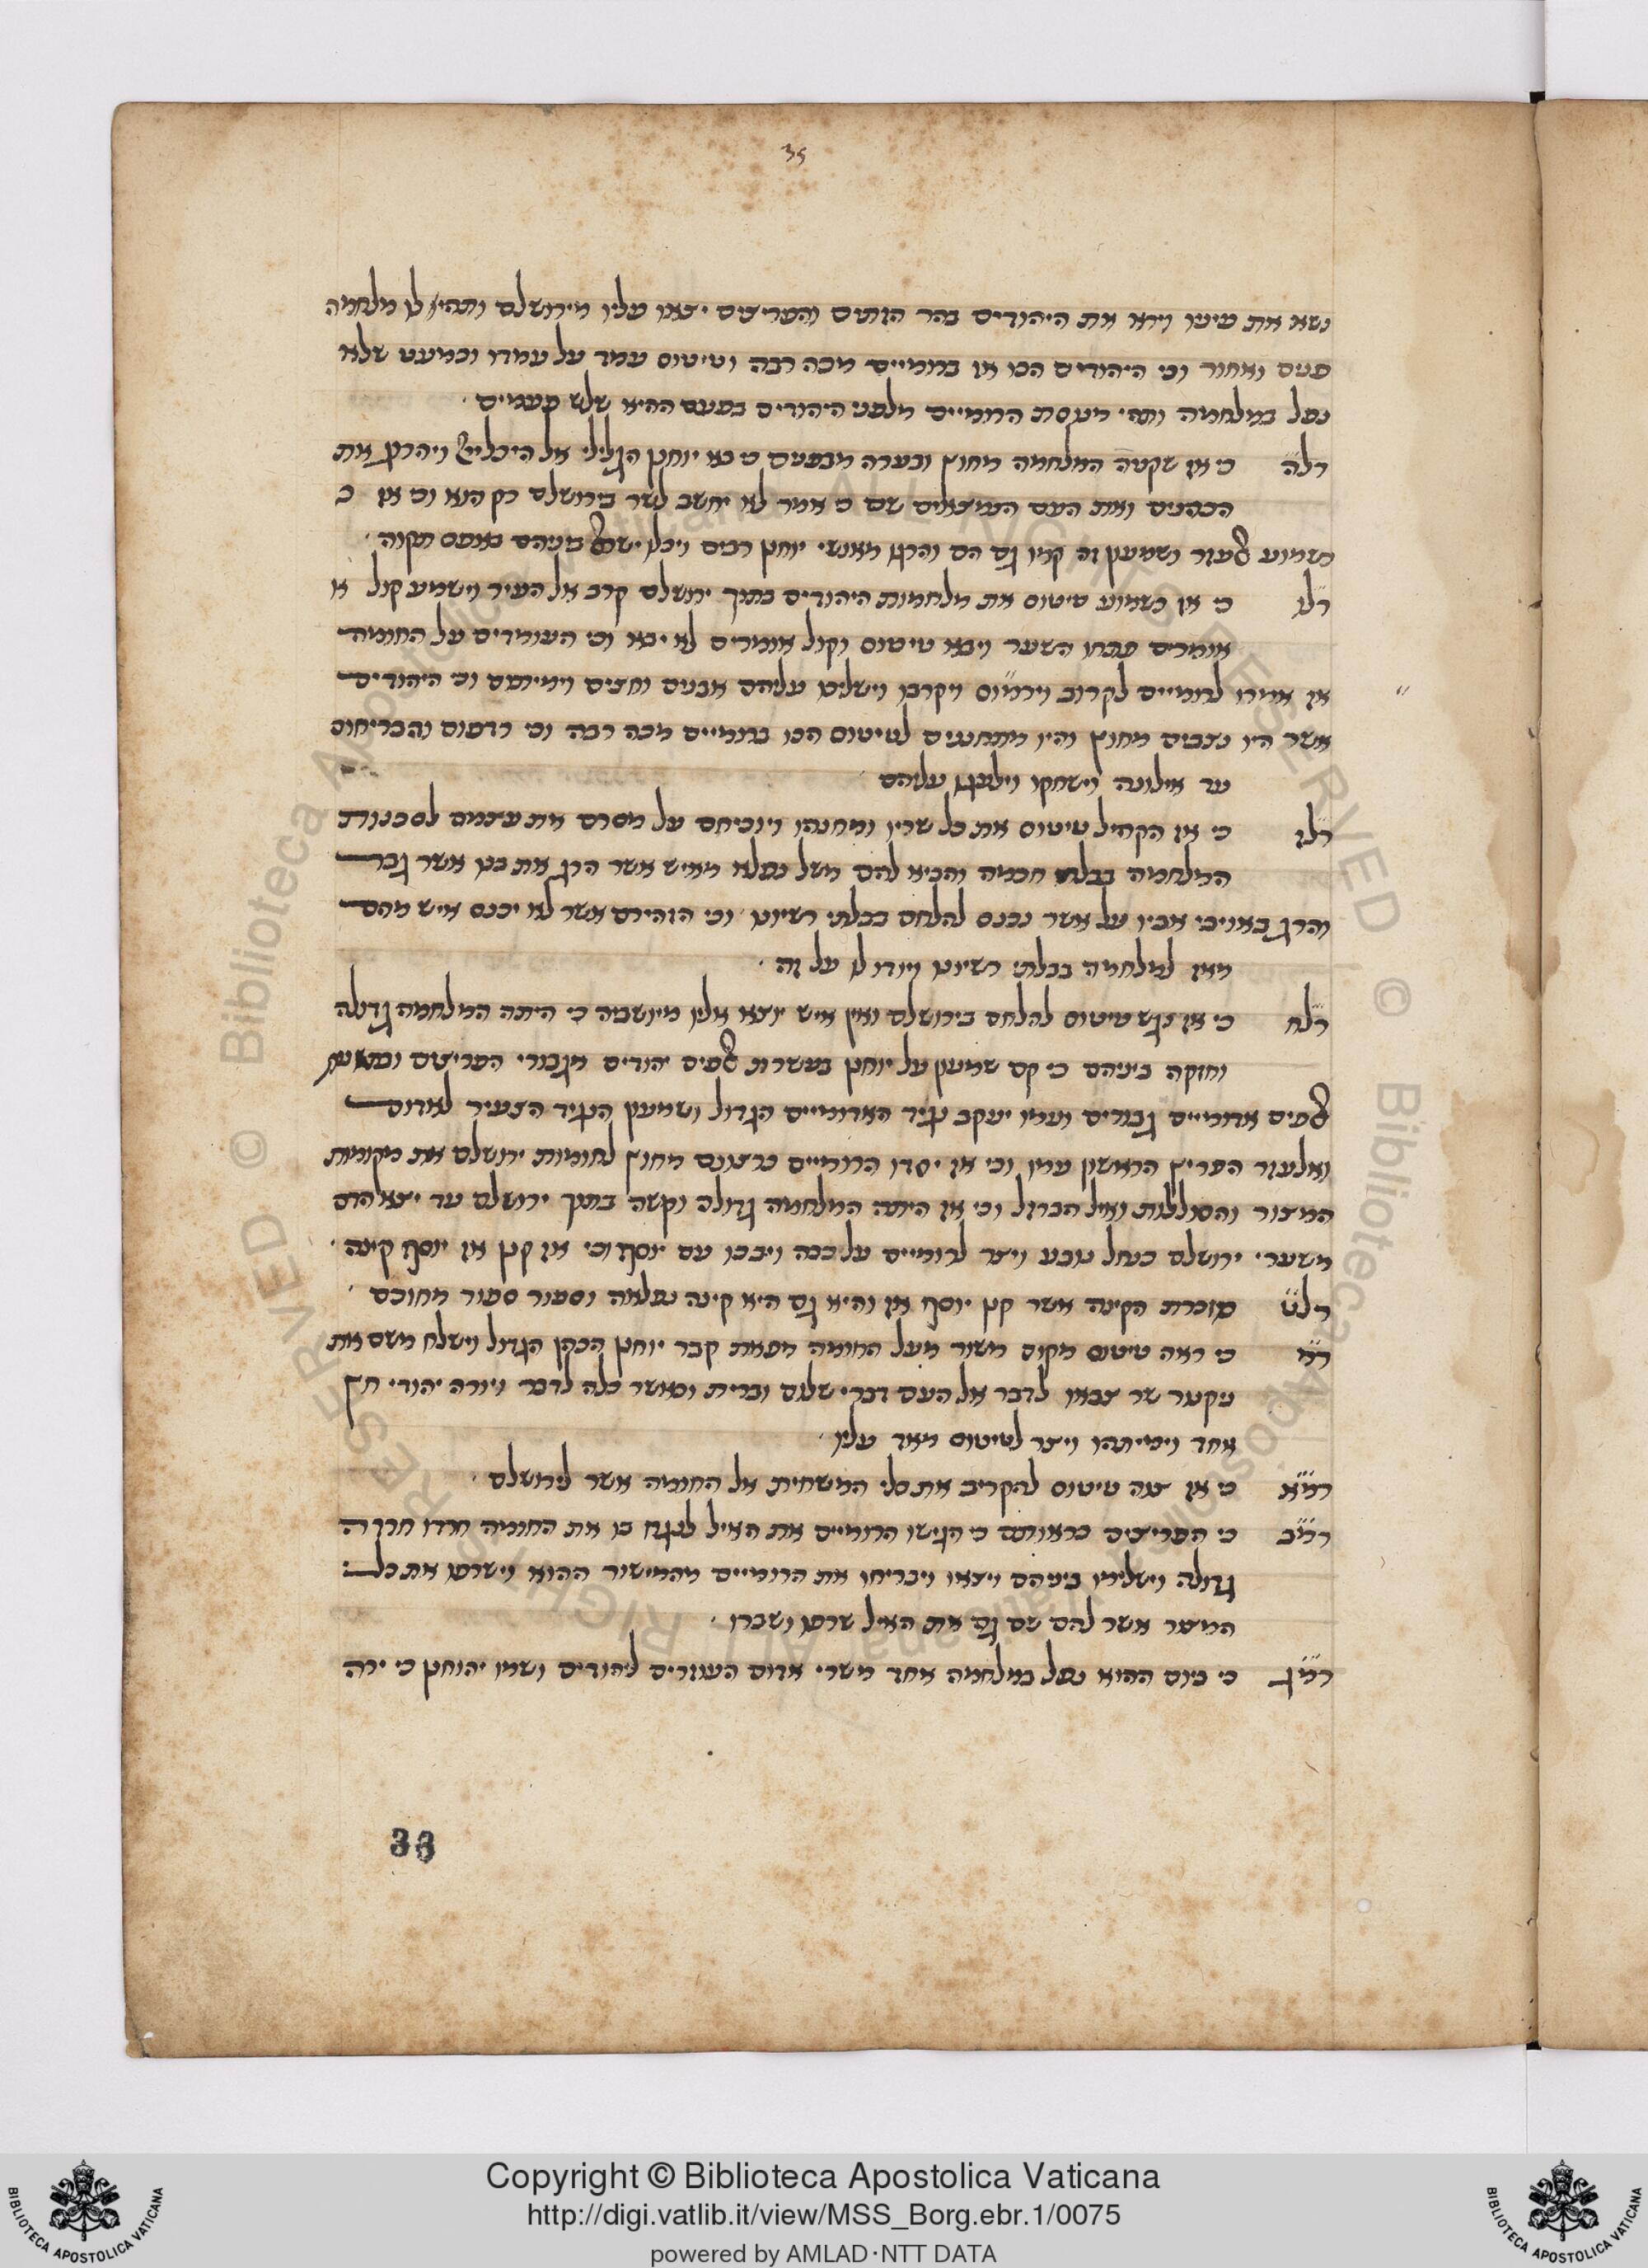 35
נשא את עיניו וירא את היהודים בהר הזתים והפריצים יצאו עליו מירושלם ותהי לו מלחמה
פנים ואחור וכי היהודים הכו אז ברומיים מכה רבה וטיטוס עמד על עמדו וכמעט שלא
נפל במלחמה ותהי מנסת הרומיים מלפני היהודים בפעם ההיא שלש פעמים
רלה כי אז שקטה המלחמה מחוץ ובערה מבפנים כי בא יוחנן הגלילי אל היכל ייי ויהרוג את
הכהנים ואת העם הנמצאים שם כי אמר לא יחשב לשר בירושלם רק הוא וכי אז כ
כשמוע אלעזר ושמעון זה קמו גם הם והרגו מאנשי יוחנן רבים ויכלו ישראל ביניהם באפס תקוה
רלו כי אז כשמוע טיטוס את מלחמות היהודים בתוך ירושלם קרב אל העיר וישמע קול א
אומרים פתחו השער ויבא טיטוס וקול אומרים לא יבא וכי העומדים על החומה
אז אמרו לרומיים לקרוב וירמום ויקרבו וישליכו עליהם אבנים וחצים וימיתום וכי היהודים
אשר היו נצבים מחוץ והיו מתחננים לטיטוס הכו ברומיים מכה רבה וכי רדפום והבריחום
עד אילונה וישחקו וילעגו עליהם
רלז כי אז הקהיל טיטוס את כל שריו ומחנהו ויוכיחם על מסרם את עצמם לסכנות
המלחמה בבלתי חכמה והביא להם משל נפלא מאיש אשר הרג את בנו אשר גבר
והרג באויבי אביו על אשר נכנס להלחם בבלתי רשיונו וכי הזהירם אשר לא יכנס איש מהם
מאז למלחמה בבלתי רשיונו ויודו לו על זה
רלח כי אז נגש טיטוס להלחם בירושלם ואין איש יוצא אליו מיושביה כי היתה המלחמה גדולה
וחזקה ביניהם כי קם שמעון על יוחנן בעשרת אלפים יהודים מגבורי הפריצים ובחמשת
אלפים אדומיים גבורים ועמו יעקב נגיד האדומיים הגדול ושמעון הנגיד הצעיר לאדום
ואלעזר הפריץ הראשון עמו וכי אז יסדו הרומיים כרצונם מחוץ לחומות ירושלם את מקומות
המצור והסוללות ואיל הברזל וכי אז היתה המלחמה גדולה וקשה בתוך ירושלם עד יצא הדם
משערי ירושלם כנחל נובע ויצר לרומיים על ככה ויבכו עם יוסף וכי אז קונן אז יוסף קינה
רלט מזכרת הקינה אשר קונן יוסף אז והיא גם היא קינה נפלאה וספור ספור מחוכם
רמ כי ראה טיטוס מקום מישור מעל החומה מפאת קבר יוחנן הכהן הגדול וישלח משם את
ניקנור שר צבאו לדבר אל העם דברי שלום וברית וכאשר כלה לדבר ויורה יהודי חץ
אחד וימיתהו ויצר לטיטוס מאד עליו
רמא כי אז צוה טיטוס להקריב את כלי המשחית אל החומה אשר לירושלם
רמב כי הפריצים כראותם כי הגישו הרומיים את האיל לנגח בו את החומה חרדו חרדה
גדולה וישלימו ביניהם ויצאו ויבריחו את הרומיים מהמישור ההוא וישרפו את כל
המצור אשר להם שם גם את האיל שרפו ושברו
רמג כי ביום ההוא נפל במלחמה אחד משרי אדום העוזרים ליהודים ושמו יהוחנן כי ירה
33
Copyright © Biblioteca Apostolica Vaticana
http://digi.vatlib.it/view/MSS_Borg.ebr.1/0075
powered by AMLAD·NTT DATA